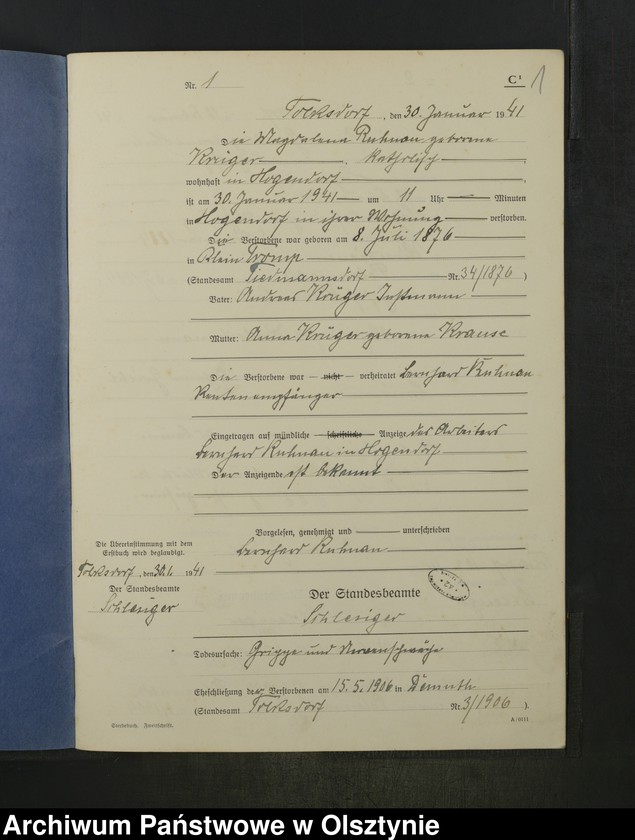 Nr. 1
C¹
1
Tolksdorf, den 30. Januar 1941
Die Magdalena Kuhnau geborene
Krüger, katholisch,
wohnhaft in Hogendorf,
ist am 30. Januar 1941 um 11 Uhr Minuten
in Hogendorf in ihrer Wohnung verstorben.
Die Verstorbene war geboren am 8. Juli 1876
in Klein Tromp
(Standesamt Tiedmannsdorf Nr. 34/1876)
Vater: Andreas Krüger Instmann
Mutter: Anna Krüger geborene Krause
Die Verstorbene war — nicht — verheiratet Bernhard Kuhnau
Rentenempfänger
Eingetragen auf mündliche — schriftliche — Anzeige des Arbeiters
Bernhard Kuhnau in Hogendorf
Der Anzeigende ist bekannt
Vorgelesen, genehmigt und unterschrieben
Bernhard Kuhnau
Die Übereinstimmung mit dem
Erstbuch wird beglaubigt.
Tolksdorf, den 30.1. 1941
Der Standesbeamte
Schlesiger
Der Standesbeamte
Schlesiger
Todesursache: Grippe und Nervenschwäche
Eheschließung der Verstorbenen am 15.5.1906 in Demuth
(Standesamt Tolksdorf Nr. 3/1906).
Sterbebuch. Zweitschrift.
Archiwum Państwowe w Olsztynie